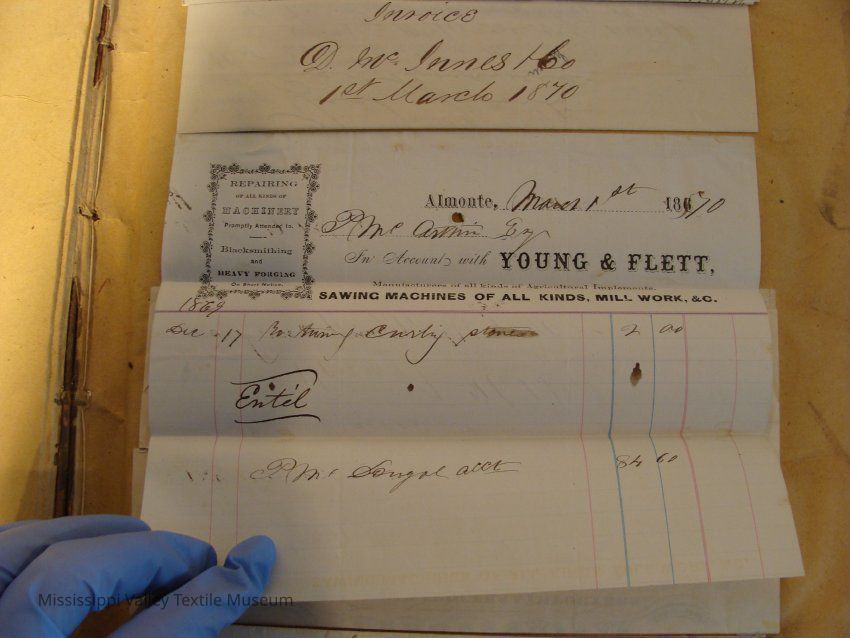 Invoice
D. Mc Innes & Co
1st March 1870
REPAIRING
OF ALL KINDS OF
MACHINERY
Promptly Attended to.
Blacksmithing
and
HEAVY FORGING
On Short Notice.
Almonte, March 1st 1870
P. Mc Arthur Esq
In Account with YOUNG & FLETT,
Manufacturers of all kinds of Agricultural Implements,
SAWING MACHINES OF ALL KINDS, MILL WORK, &C.
1869
Dec 17 stone 2 00
Ent'd
P. Mc acct 84 60
Mississippi Valley Textile Museum